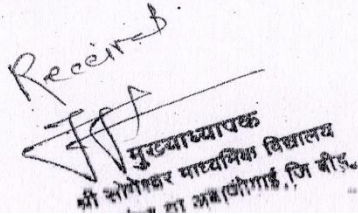 Received.
मुख्याध्यापक
श्री सोमेश्वर माध्यमिक विद्यालय
ता अंबाजोगाई, जि बीड